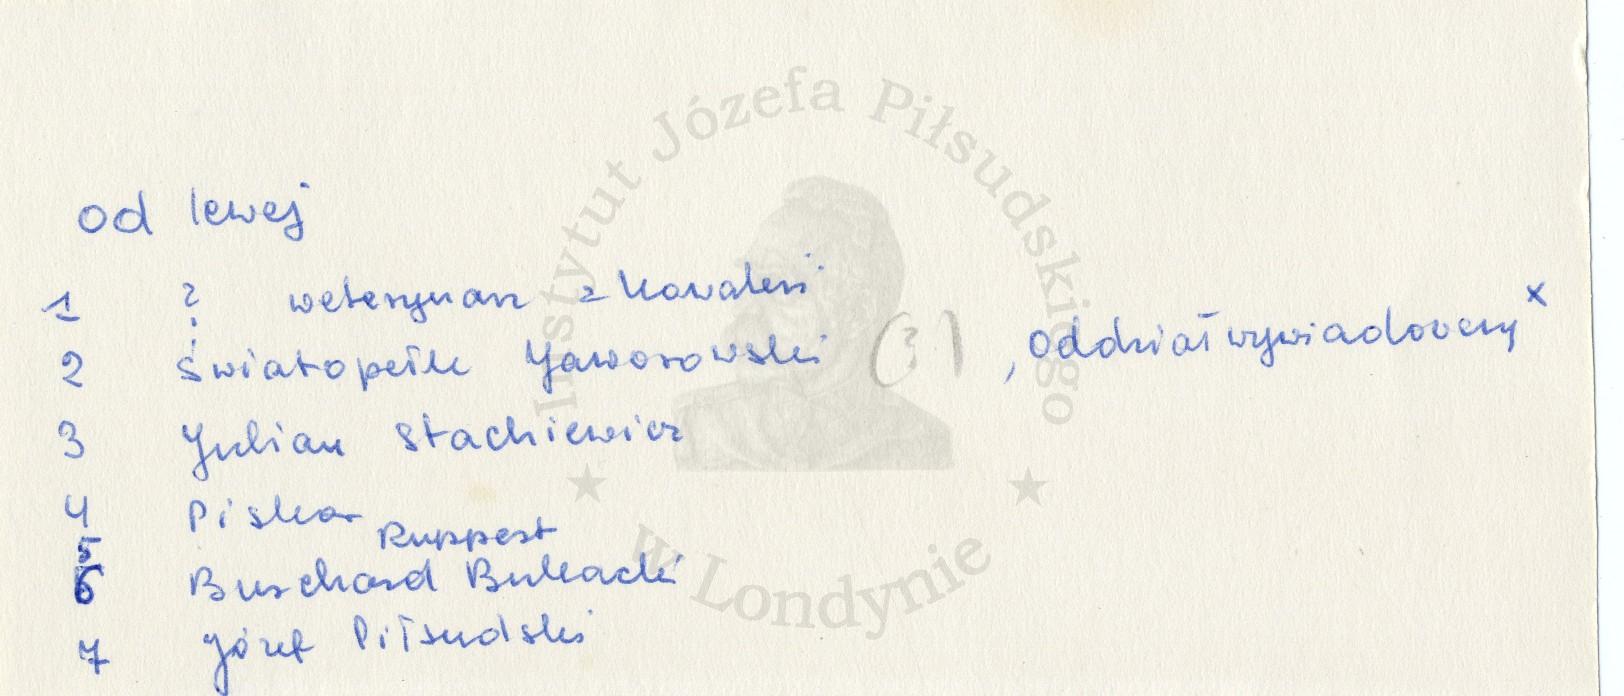 Instytut Józefa Piłsudskiego
w Londynie
od lewej
1 ? weterynarz z Kowalem
2 Światopełk Jaworowski (3) , Oddział wywiadowczy x
3 Julian Stachiewicz
4 Piskor
5 Ruppert
6 Burchard Bukacki
7 Józef Piłsudski